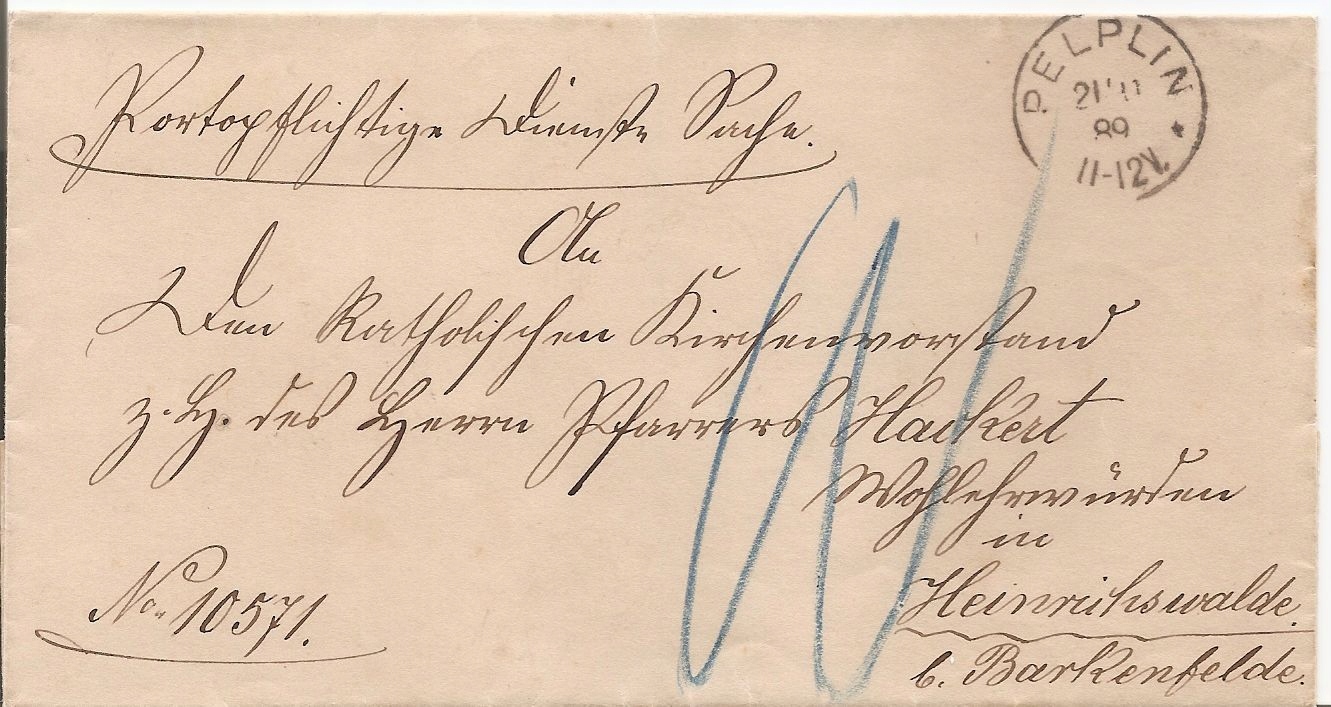 PELPLIN
89
11-12V.
Portopflichtige Dienst Sache.
An
Den Katholischen Kirchenvorstand
z. H. des Herrn Pfarrers Hackert
Wohlehrwürden
in
Heinrichswalde.
b. Barkenfelde.
No. 10571.